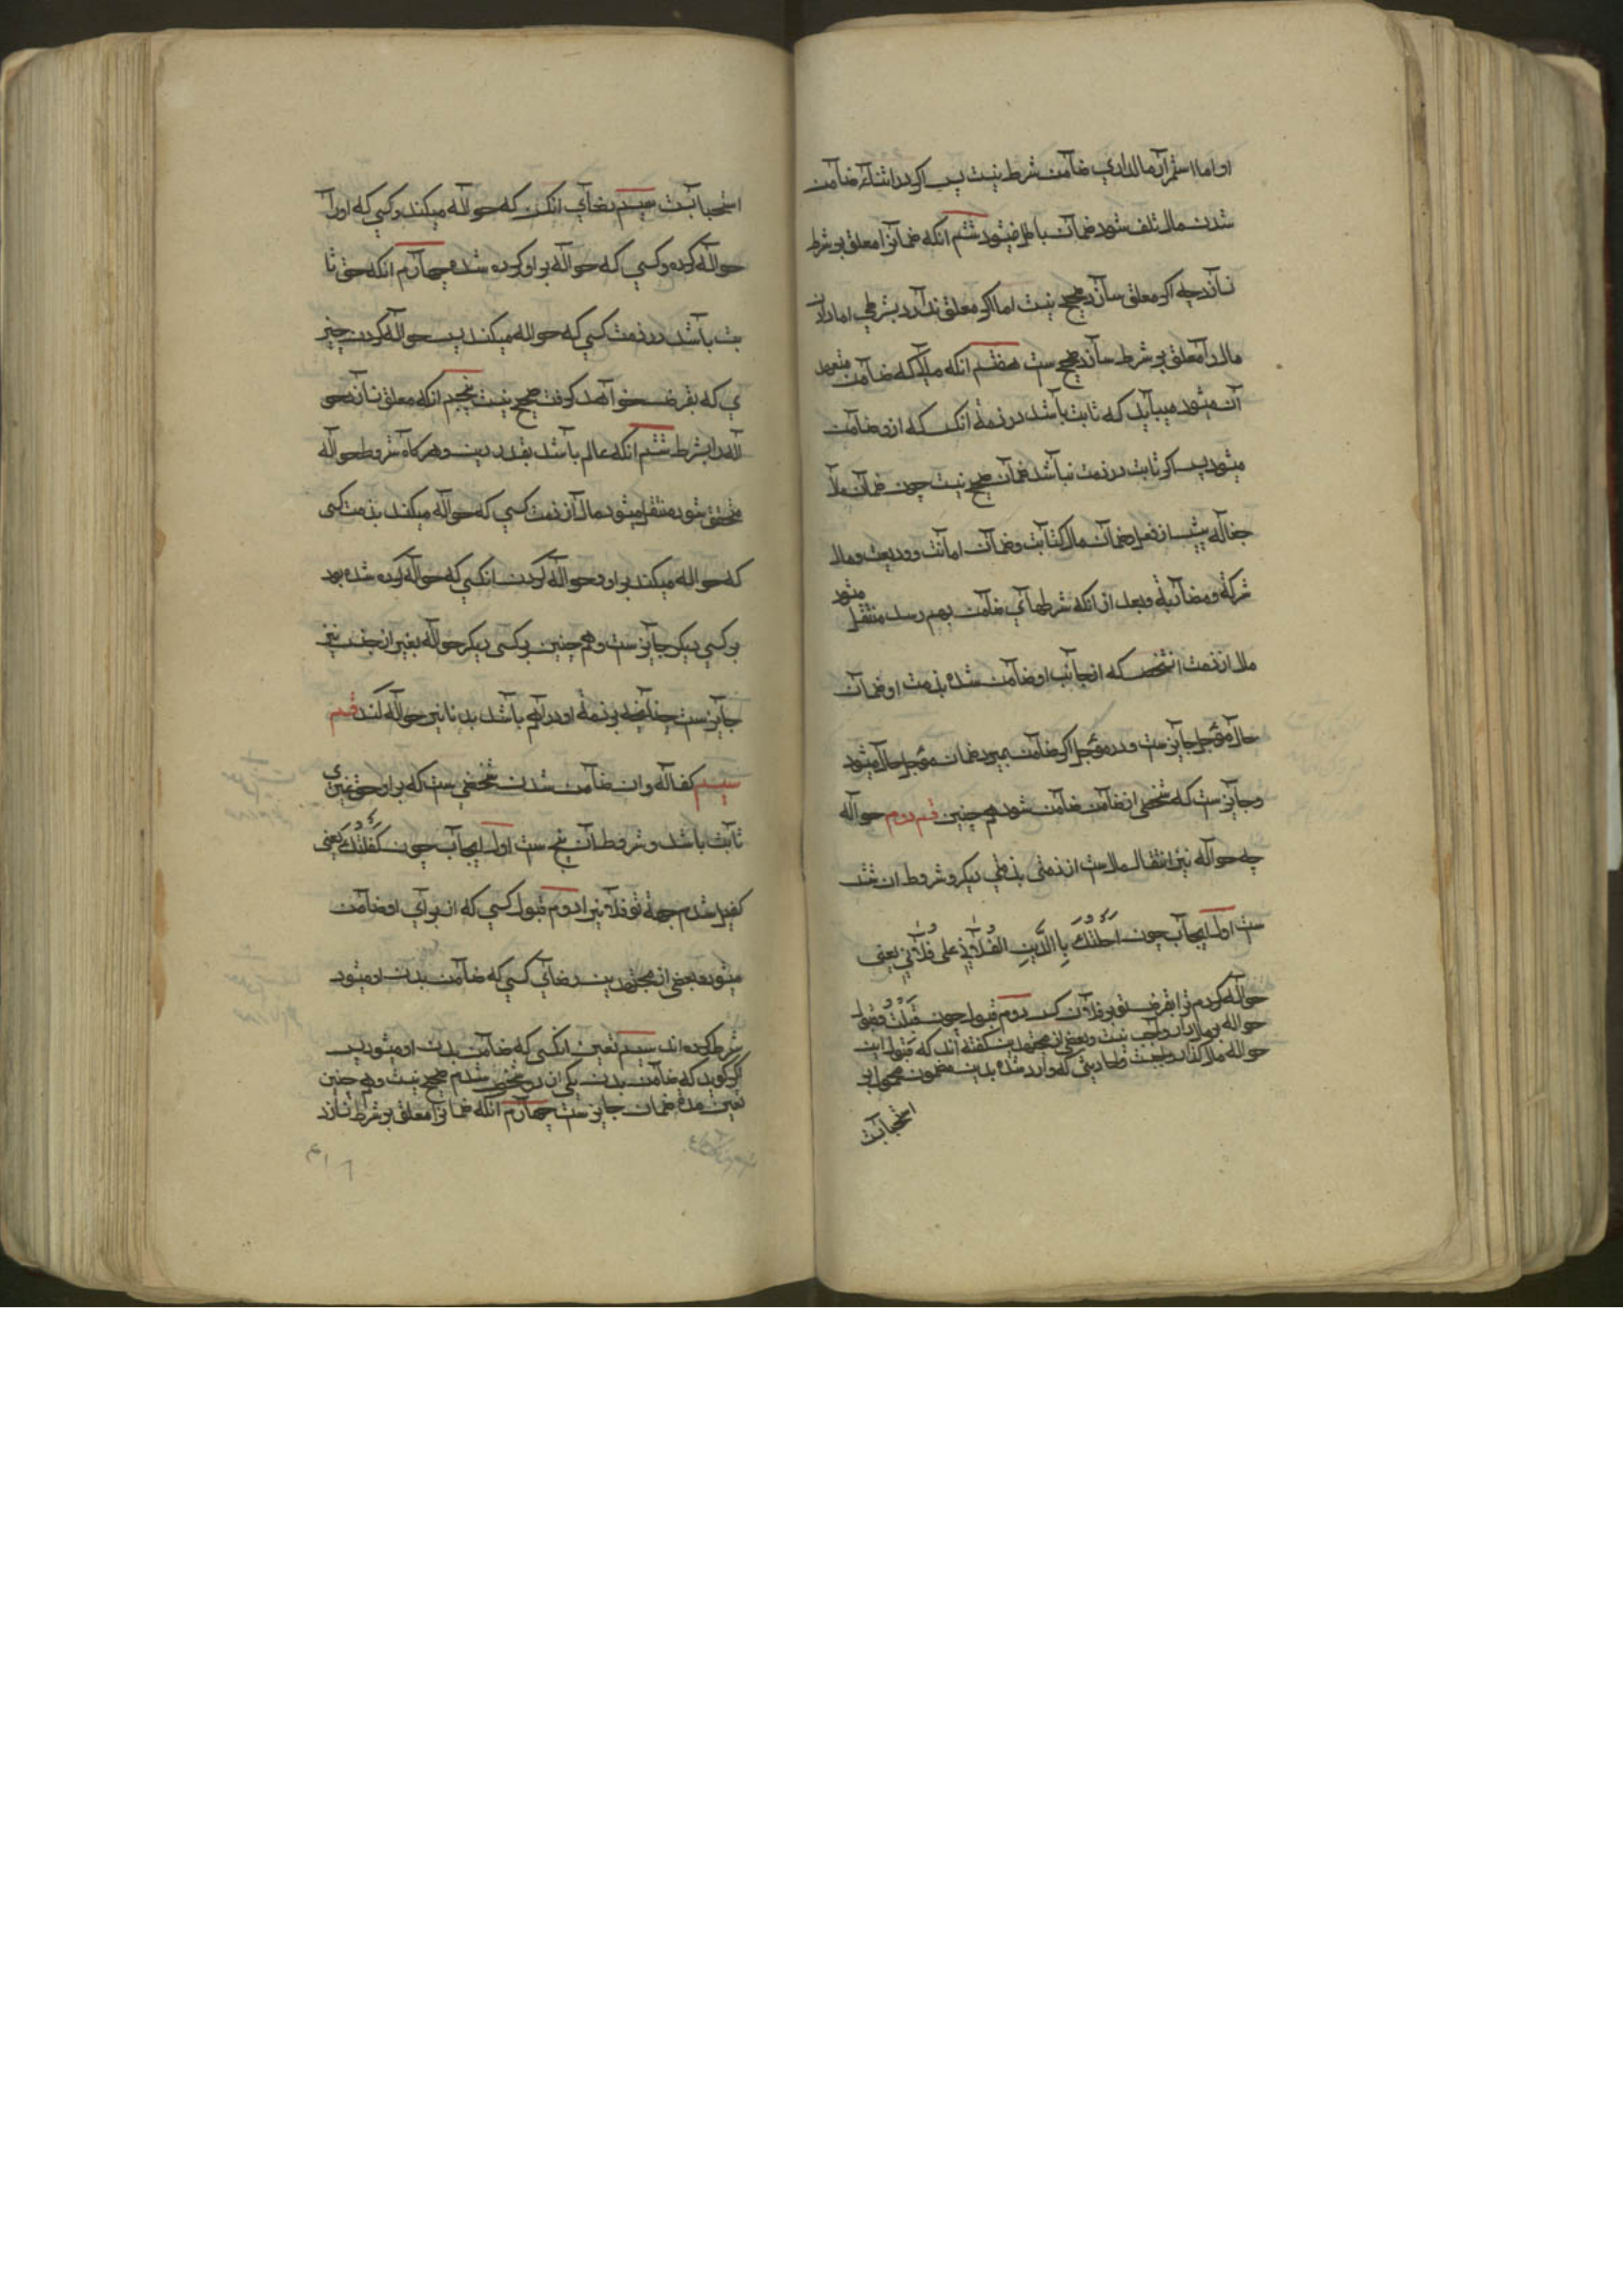 او اما استمرار مالداری ضامن شرط نیست پس اکر در اثناء ضامن
شدن مال تلف شود ضمان باطل نمیشود ششم انکه ضمانرا معلق بر شرط
نسازد چه اکر معلق سازد صحیح نیست اما اکر معلق ندارد بشرطی اما دادن
مال را معلق بر شرط سازد صحیح ست هفتم انکه مالی که ضامن متعهد
آن میشود میباید که ثابت باشد در ذمهٔ انکس که ازو ضامن
میشود پس اکر ثابت در ذمت نباشد ضمان صحیح نیست چون ضمان مال
جعاله پیش از فعل و ضمان مال کتابت و ضمان امانت و ودیعت و مال
شرکة و مضاربة و بعد از انکه شرطهای ضامن بهم رسد منتقل میشود
مال از ذمت انشخص که از جانب او ضامن شده بذمت او و ضمان
حال مؤجل جایز ست و در مؤجل اکر ضامن بمیرد ضمان مؤجل حال میشود
و جایز ست که شخصی از ضامن ضامن شود و هم چنین قسم دوم حواله
چه حواله نیز انتقال مال ست از ذمتی بذمتی دیکر و شروط ان شش
ست اول ایجاب چون احلتک باالدین الفلانی علی فلانی یعنی
حواله کردم ترا بقرض تو بر فلان کس دوم قبول چون قبلت و قبول
حواله بر مالدار واجب نیست و بعضی از مجتهدین کفته اند که قبول این
حواله مالدار واجبست و احادیثی که وارد شده بدین مضمون محمول بر
استحبابت
استحبابت سیم رضای انکس که حواله میکند و کسی که او را
حواله کرده و کسی که حواله بر او کرده شده چهارم انکه حق ثا
بت باشد در ذمت کسی که حواله میکند پس حواله کردن چیز
ی که بقرض خواهد کرفت صحیح نیست پنجم انکه معلق نسازد حو
اله را بشرط ششم انکه عالم باشد بقدر دین و هرکاه شروط حواله
متحقق شود منتقل میشود مال از ذمت کسی که حواله میکند بذمت کسی
که حواله میکند بر او و حواله کردن انکسی که حواله کرده شده بود
بر کسی دیکر جایز ست و هم چنین بر کسی دیکر حواله بغیر از جنس نیز
جایز ست چنانچه بر ذمهٔ او دراهم باشد بدنانیر حواله کند قسم
سیم کفاله و ان ضامن شدن شخصی ست که بر او حقی
ثابت باشد و شروط آن پنج ست اول ایجاب چون کفلتک یعنی
کفیل شدم جهة تو فلانیرا دوم قبول کسی که از برای او ضامن
میشود و بعضی از مجتهدین رضای کسی که ضامن بدن او میشود
شرط کرده اند سیم تعین انکسی که ضامن بدن او میشود پس
اکر کوید که ضامن بدن یکی ازین دو شخص شدم صحیح نیست و هم چنین
تعین مدة ضمان جایز ست چهارم انکه ضمانرا معلق بر شرط نسازد